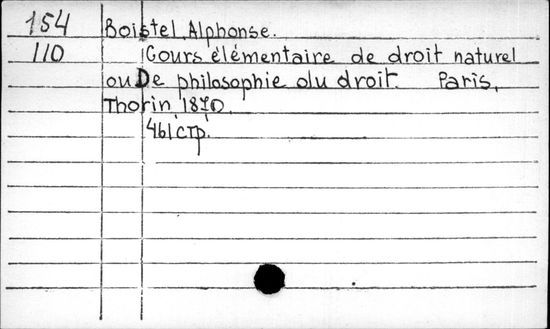 154 Boistel, Alphonse.
110 Cours élémentaire de droit naturel
ou De philosophie du droit. Paris,
Thorin, 1870.
461 стр.